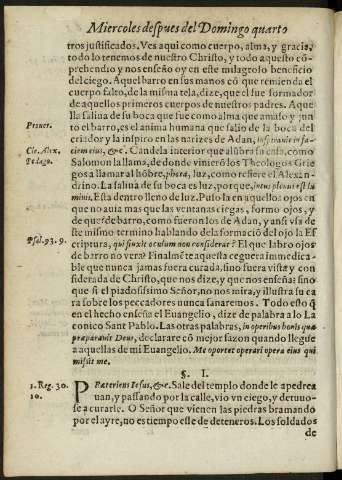 Miercoles despues del Domingo quarto
tros justificados. Ves aqui como cuerpo, alma, y gracia,
todo lo tenemos de nuestro Christo, y todo aquesto cõ-
prehendio y nos enseño oy en este milagroso beneficio
del ciego. Aquel barro en sus manos cõ que remienda el
cuerpo falto, de la misma tela, dize, que el fue formador
de aquellos primeros cuerpos de nuestros padres. Aque
lla saliua de su boca que fue como alma que amasso y jun
to el barro, es el anima humana que salio de la boca del
Prouer.
criador y la inspiro en las narizes de Adan, inspirauit in fa-
Cle. Alex.
ciem eius, &c. Candela interior que alũbra su casa, como
Pedago.
Salomon la llama, de donde vinierõ los Theologos Grie
gos a llamar al hõbre, phos, luz, como refiere el Alexan-
drino. La saliua de su boca es luz, porque, intus plenus est lu
mine, Esta dentro lleno de luz. Puso la en aquellos ojos en
que no auia mas que las ventanas ciegas, formo ojos, y
de que? de barro, como fueron los de Adan, y assi vsa de
este mismo termino hablando de la formació del ojo la Es
Psal. 93. 9.
criptura, qui finxit oculum non considerat? El que labro ojos
de barro no vera? Finalmẽte aquesta ceguera inmedica-
ble que nunca jamas fuera curada, sino fuera vista y con
siderada de Christo, que nos dize, y que nos enseña? sino
que si el piadosissimo Señor, no nos mira, y illustra su ca
ra sobre los peccadores nunca sanaremos. Todo esto q̃
en el hecho enseña el Euangelio, dize de palabra a lo La
conico Sant Pablo. Las otras palabras, in operibus bonis quæ
præparauit Deus, declarare cõ mejor sazon quando llegue
a aquellas de mi Euangelio. Me oportet operari opera eius qui
misit me.
§. I.
1. Reg. 30.
10.
PRæteriens Iesus, &c. Sale del templo donde le apedrea
uan, y passando por la calle, vio vn ciego, y detuuo-
se a curarle. O Señor que vienen las piedras bramando
por el ayre, no es tiempo esse de deteneros. Los soldados
de